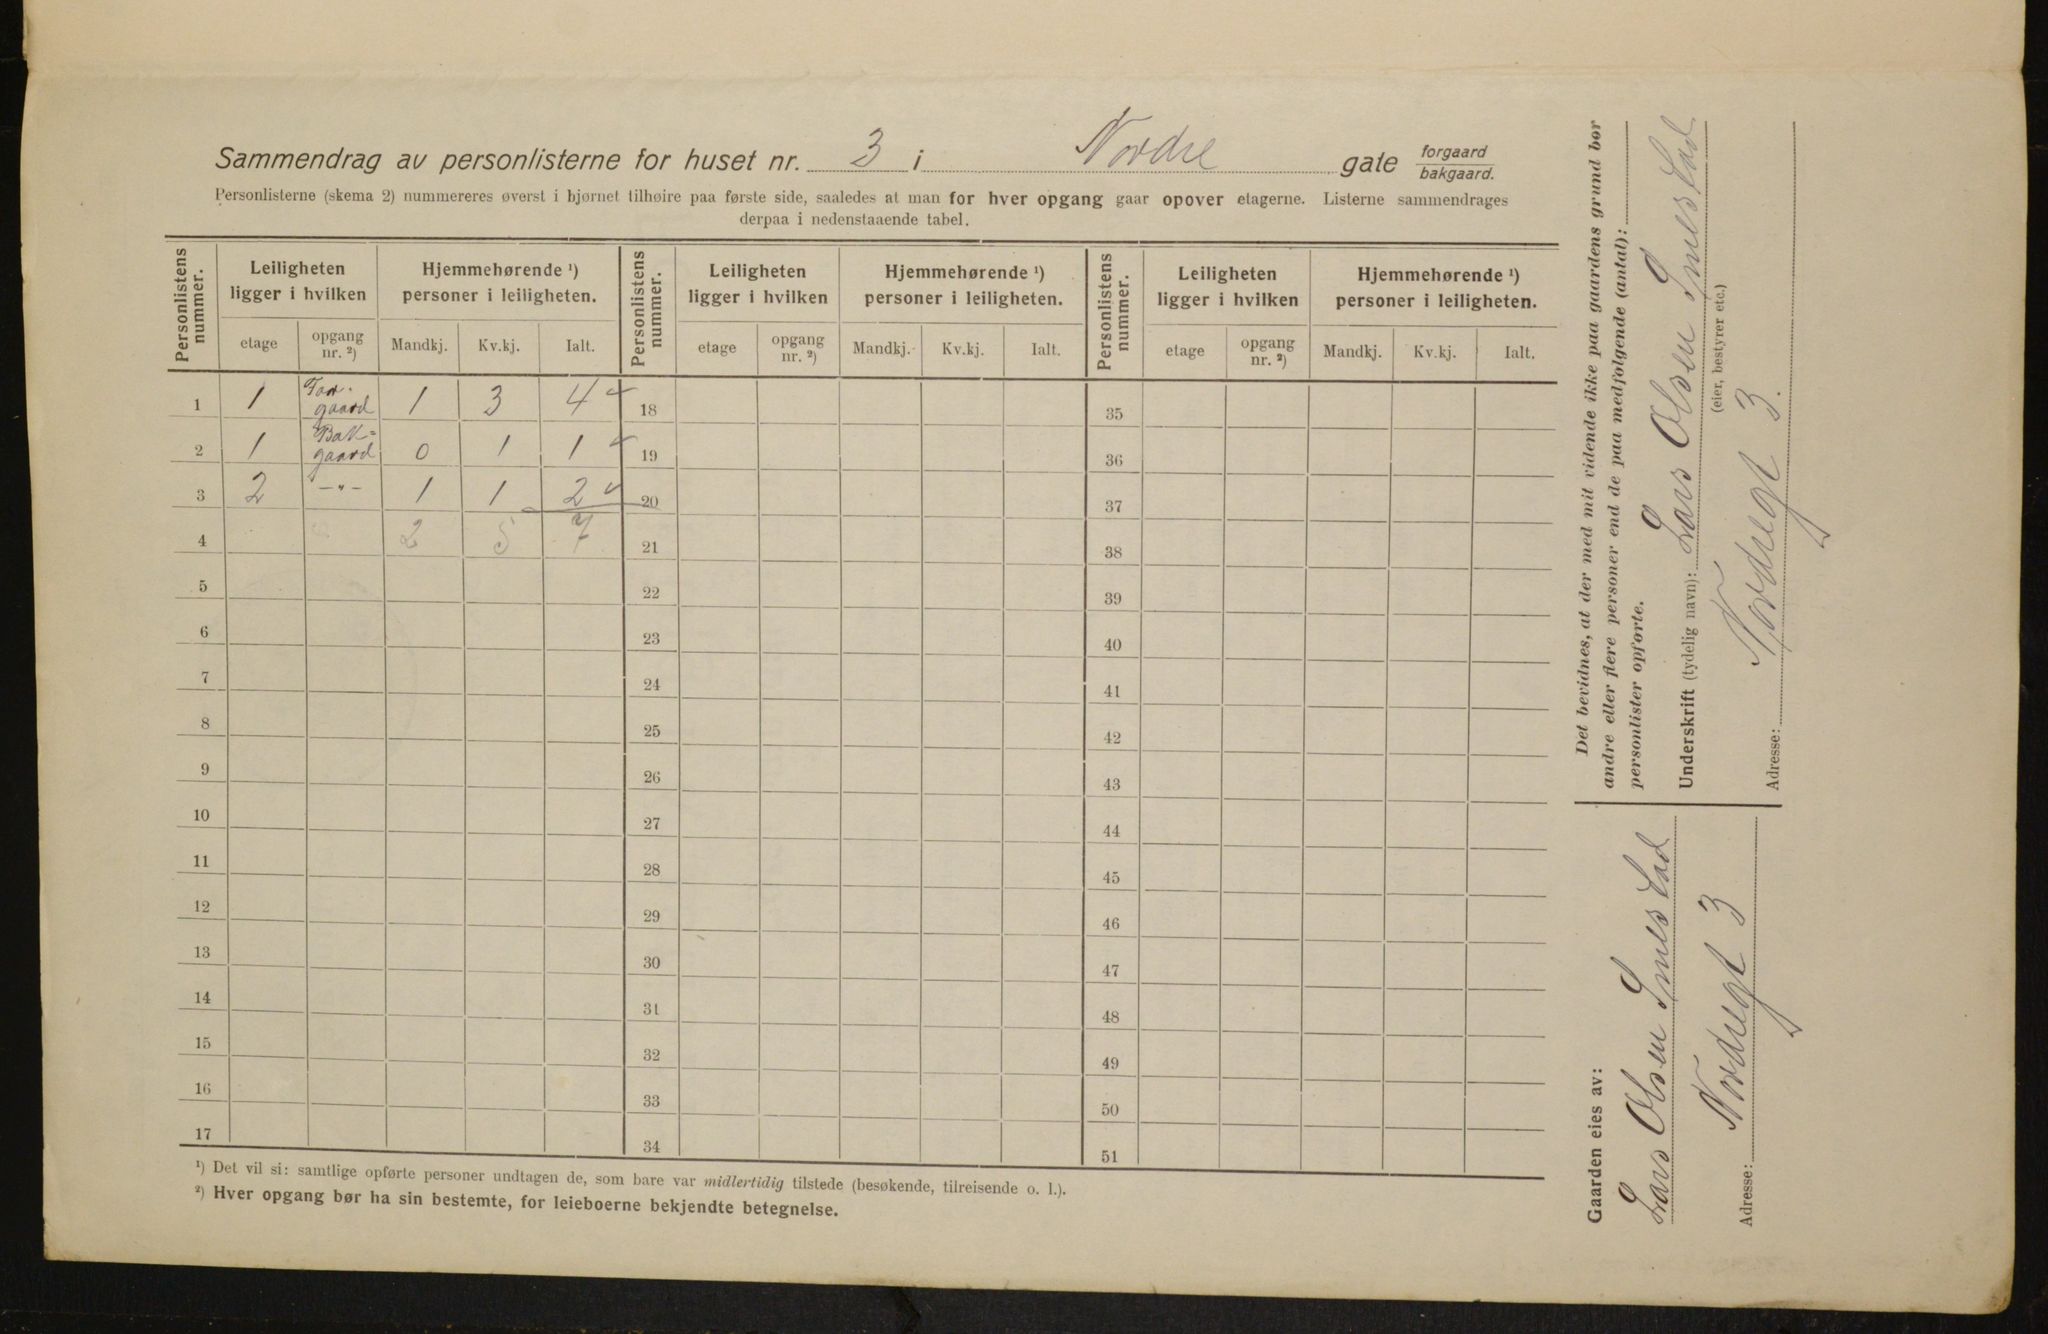 Sammendrag av personlisterne for huset nr. 3 i Nordre gate forgaard bakgaard.
Personlisterne (skema 2) nummereres øverst i bjørnet tilhøire paa første side, saaledes at man for hver opgang gaar opover etagerne. Listerne sammendrages
derpaa i nedenstaaende tabel.
Personlistens nummer. Leiligheten ligger i hvilken Hjemmehørende ¹) personer i leiligheten. Personlistens nummer. Leiligheten ligger i hvilken Hjemmehørende ¹) personer i leiligheten. Personlistens nummer. Leiligheten ligger i hvilken Hjemmehørende ¹) personer i leiligheten.
etage opgang nr. ²) Mandkj. Kv.kj. Ialt. etage opgang nr. ²) Mandkj. Kv.kj. Ialt. etage opgang nr. ²) Mandkj. Kv.kj. Ialt.
1 1 For-gaard 1 3 4 18 35
2 1 Bak=gaard 0 1 1 19 36
3 2 –"– 1 1 2 20 37
4 2 5 7 21 38
5 22 39
6 23 40
7 24 41
8 25 42
9 26 43
10 27 44
11 28 45
12 29 46
13 30 47
14 31 48
15 32 49
16 33 50
17 34 51
¹) Det vil si: samtlige opførte personer undtagen de, som bare var midlertidig tilstede (besøkende, tilreisende o. l.).
²) Hver opgang bør ha sin bestemte, for leieboerne bekjendte betegnelse.
Det bevidnes, at der med mit vidende ikke paa gaardens grund bor
andre eller flere personer end de paa medfølgende (antal):
personlister opførte.
Underskrift (tydelig navn): Lars Olsen
(eier, bestyrer etc.)
Adresse: Nordregt 3.
Gaarden eies av:
Lars Olsen
Adresse: Nordregt 3